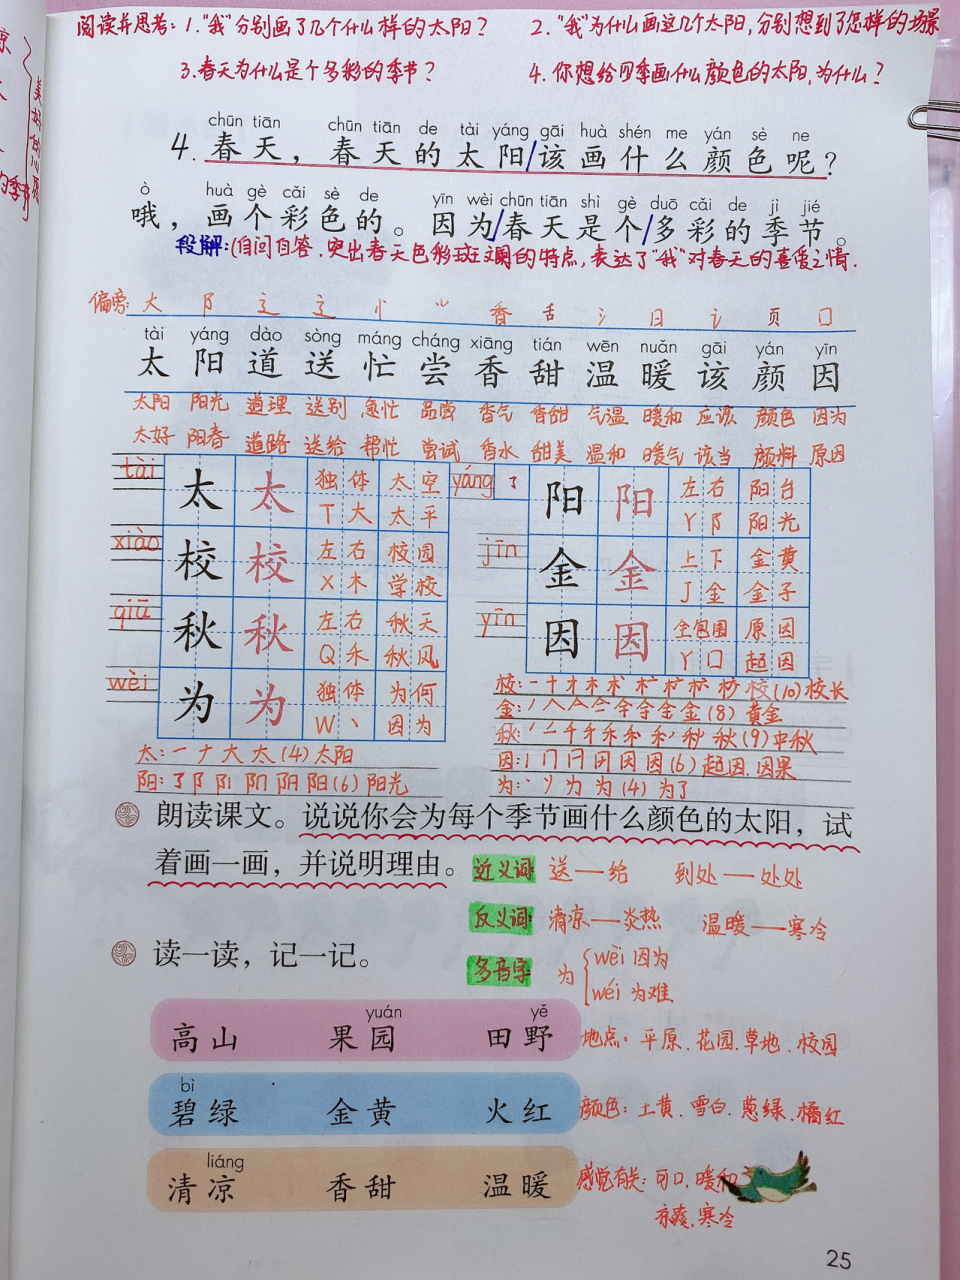 阅读并思考：1."我"分别画了几个什么样的太阳？ 2."我"为什么画这几个太阳，分别想到了怎样的场景
3.春天为什么是个多彩的季节？ 4.你想给四季画什么颜色的太阳，为什么？
chūn tiān chūn tiān de tài yáng gāi huà shén me yán sè ne
4.春天，春天的太阳/该画什么颜色呢？
ò huà gè cǎi sè de yīn wèi chūn tiān shì gè duō cǎi de jì jié
哦，画个彩色的。因为/春天是个/多彩的季节。
段解：(自问自答.突出春天色彩斑斓的特点，表达了"我"对春天的喜爱之情.
偏旁：大 阝 辶 辶 忄 ⺌ 香 舌 氵 日 讠 页 囗
tài yáng dào sòng máng cháng xiāng tián wēn nuǎn gāi yán yīn
太 阳 道 送 忙 尝 香 甜 温 暖 该 颜 因
太阳 阳光 道理 送别 急忙 品尝 香气 香甜 气温 暖和 应该 颜色 因为
太好 阳春 道路 送给 帮忙 尝试 香水 甜美 温和 暖气 该当 颜料 原因
tài 太 太 独体 太空
T 大 太平
yáng ㇌ 阳 阳 左右 阳台
Y 阝 阳光
xiào 校 校 左右 校园
X 木 学校
jīn 金 金 上下 金黄
J 金 金子
qiū 秋 秋 左右 秋天
Q 禾 秋风
yīn 因 因 全包围 原因
Y 囗 起因
wèi 为 为 独体 为何
W 丶 因为
校：(10) 校长
金：(8) 黄金
秋：(9) 中秋
因：(6) 起因.因果
为：(4) 为了
太：一 ナ 大 太 (4) 太阳
阳：(6) 阳光
朗读课文。说说你会为每个季节画什么颜色的太阳，试
着画一画，并说明理由。
近义词 送—给 到处—处处
反义词 清凉—炎热 温暖—寒冷
读一读，记一记。
多音字 为 wèi 因为
wéi 为难
yuán yě
高山 果园 田野
地点：平原.花园.草地.校园
bì
碧绿 金黄 火红
颜色：土黄.雪白.葱绿.橘红
liáng
清凉 香甜 温暖
感觉有关：可口.暖和
凉爽.寒冷
25